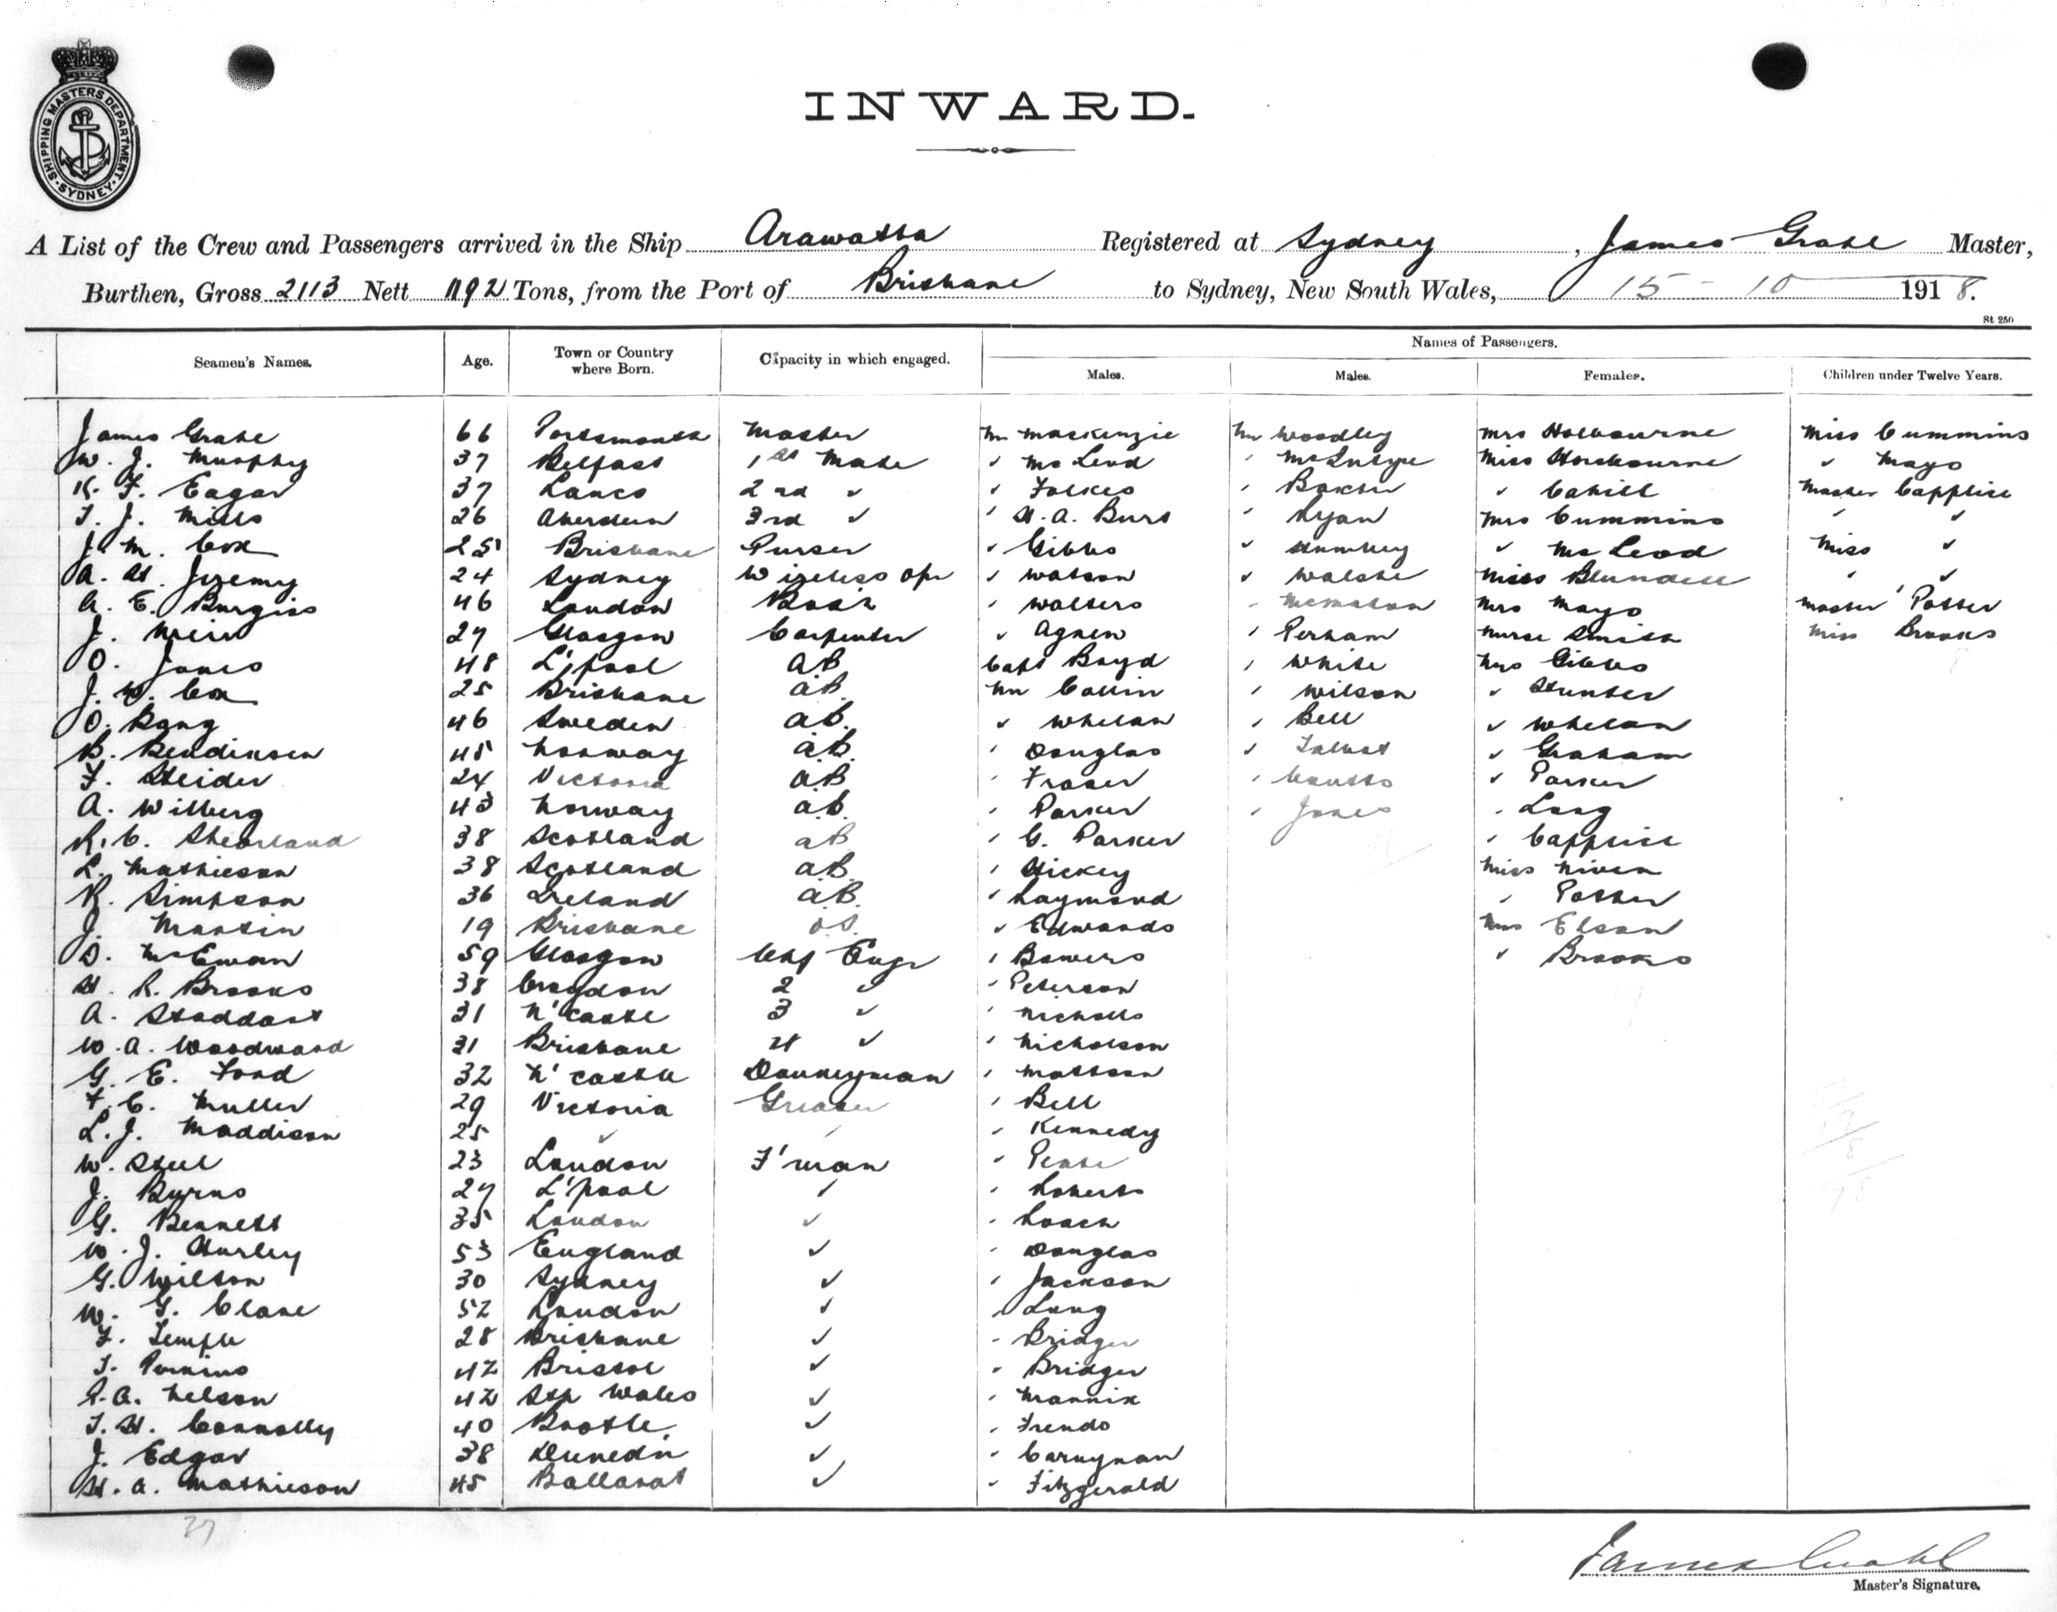 SHIPPING MASTERS DEPARTMENT
SYDNEY
INWARD.
A List of the Crew and Passengers arrived in the Ship Arawatta Registered at Sydney, James Grahl Master,
Burthen, Gross 2113 Nett 1192 Tons, from the Port of Brisbane to Sydney, New South Wales, 15 - 10 1918.
St 250
Seamen's Names. Age. Town or Country where Born. Capacity in which engaged. Names of Passengers.
Males. Males. Females. Children under Twelve Years.
James Grahl 66 Portsmouth Master Mr Mackenzie Mr Woodley Mrs Holbourne Miss Cummins
W. J. Murphy 37 Belfast 1st Mate " McLeod " McIntyre Miss Holbourne " Mayo
R. F. Eagar 37 Lancs 2nd " " Folkes " Baxter " Cahill Master Capplice
T. J. Mills 26 Aberdeen 3rd " " H. A. Burt " Ryan Mrs Cummins " "
J. M. Cox 25 Brisbane Purser " Gibbs " " McLeod Miss "
A. H. Jeremy 24 Sydney Wireless opr " Watson " Walshe Miss Blundell " "
A. E. Burgiss 46 London Bos'n " Walters " McMahon Mrs Mayo Master Potter
J. Weir 27 Glasgow Carpenter " Agnew " Perham Nurse Smith Miss Brooks
O. Jones 48 L'pool A.B. Capt Boyd " White Mrs Gibbs
J. W. Cox 25 Brisbane A.B. Mr Collin " Wilson " Hunter
O. 46 Sweden A.B. " Whelan " Bell " Whelan
B. Bendiksen 45 Norway A.B. " Douglas " Talbot " Graham
F. Heider 24 Victoria A.B. " Fraser " Coutts " Parker
A. Wilberg 43 Norway A.B. " Parker " Jones " Lang
R. C. Shearland 38 Scotland A.B. " G. Parker " Capplice
L. Mathieson 38 Scotland A.B. " Hickey Miss Niven
R. Simpson 36 Ireland A.B. " Raymond " Potter
J. Martin 19 Brisbane O.S. " Edwards Mrs Elson
D. McEwan 59 Glasgow Chf Engr " Bowers " Brooks
H. R. Brooks 38 Croydon 2 " " Peterson
A. Stoddart 31 N'castle 3 " " Nicholls
W. A. Woodward 31 Brisbane 4 " " Nicholson
G. E. Ford 32 N'castle Donkeyman " Mattson
F. C. Muller 29 Victoria Greaser " Bell
L. J. Maddison 25 " " " Kennedy
W. Steel 23 London F'man " Pease
J. Byrns 27 L'pool " " Roberts
G. Bennett 35 London " " Roach
W. J. Hurley 53 England " " Douglas
G. Wilson 30 Sydney " " Jackson
W. G. Clane 52 London " " Lang
F. Temple 28 Brisbane " " Bridger
T. Perkins 42 Bristol " " Bridger
R. A. Nelson 42 Sth Wales " " Mannix
T. H. Connolly 40 Bootle " " Trendo
J. Edgar 38 Dunedin " " Carnynan
H. A. Mathieson 45 Ballarat " " Fitzgerald
37
James Grahl
Master's Signature.